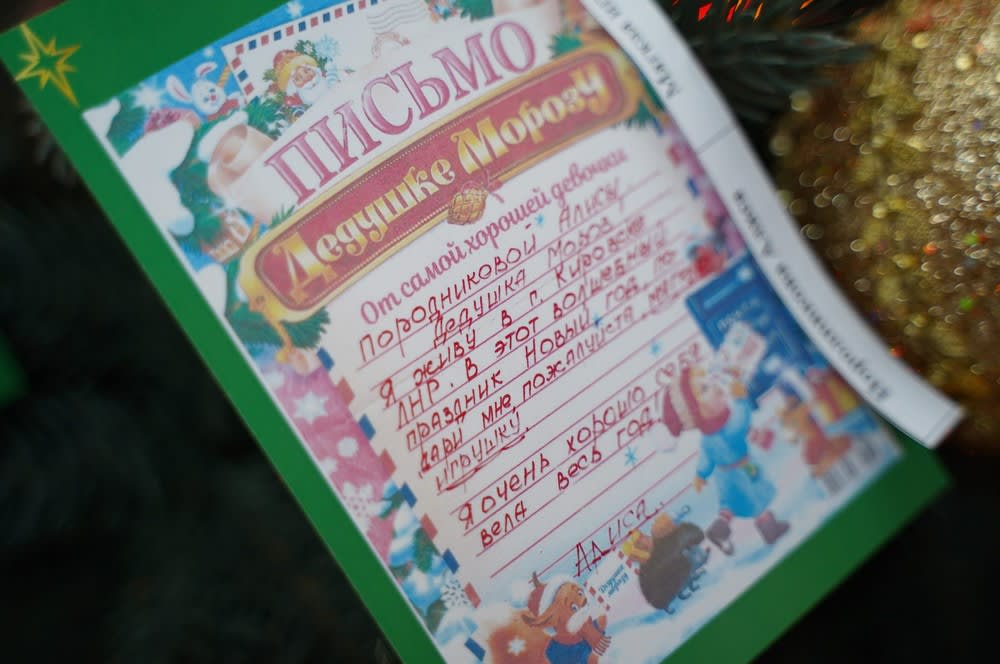 ПИСЬМО
Дедушке Морозу
От самой хорошей девочки
Породниковой Алисы.
Дедушка Мороз
Я живу в г. Кировске
ЛНР. В этот волшебный
праздник Новый год, по-
дари мне, пожалуйста, мягкую
игрушку.
Я очень хорошо себя
вела весь год!
Алиса.